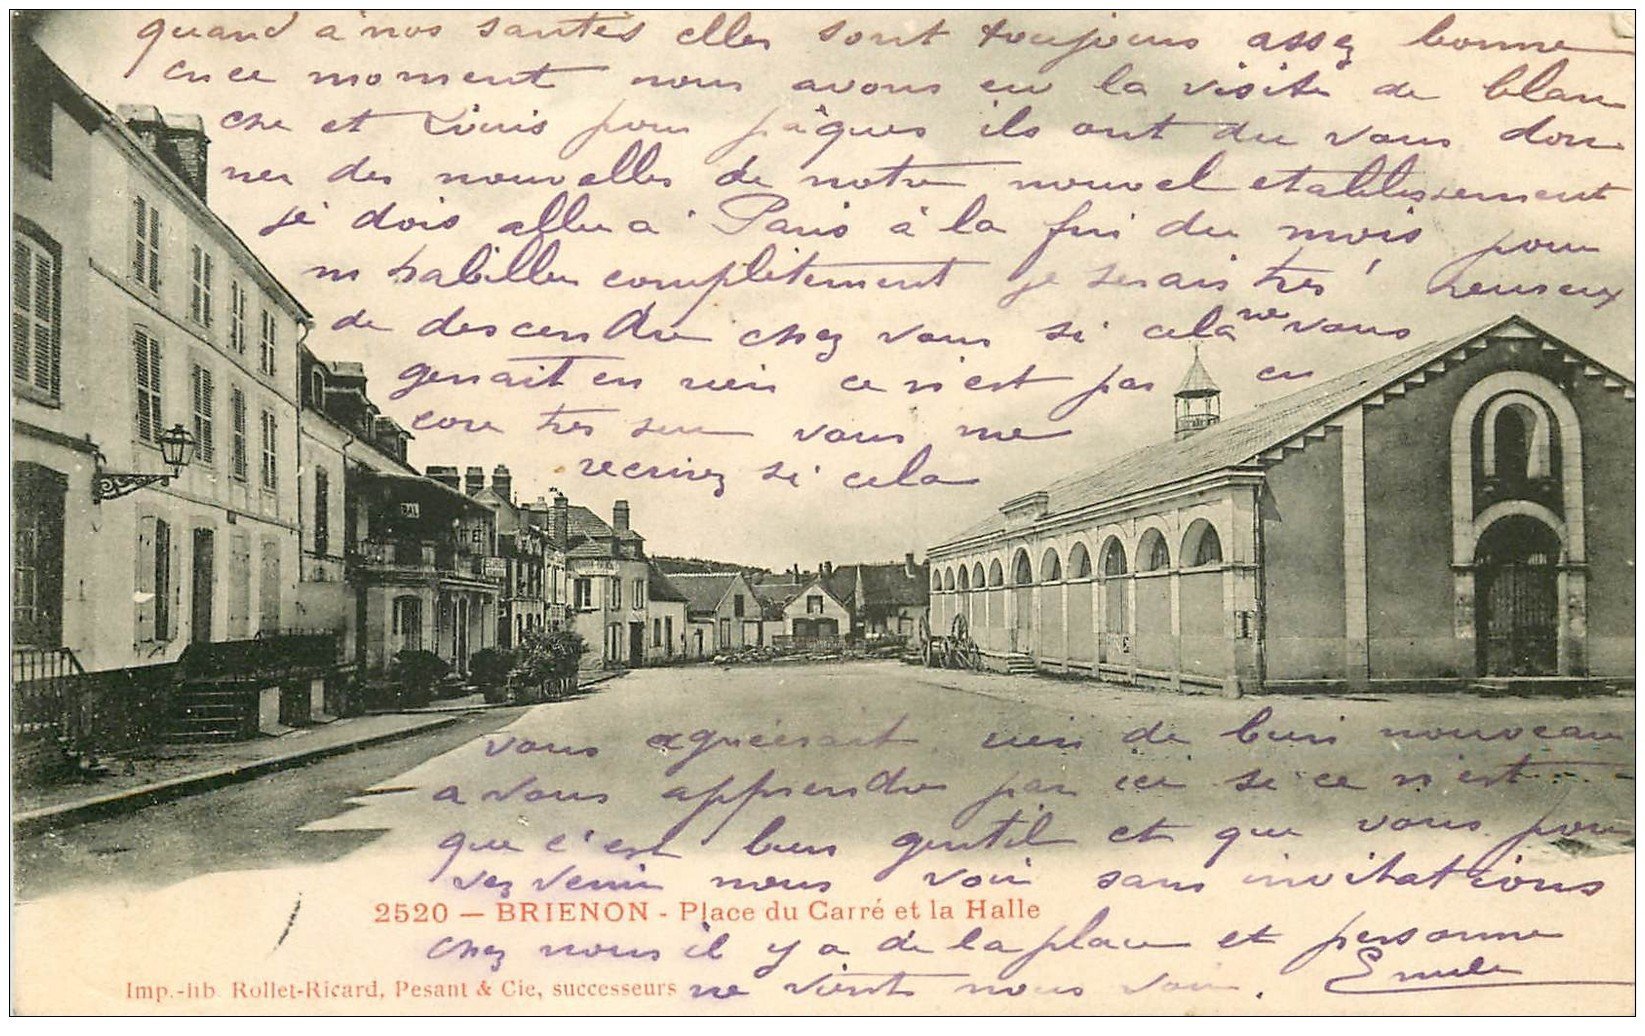 quand à nos santés elles sont toujours assez bonne
en ce moment nous avons eu la visite de Blan
che et Louis pour pâques ils ont du vous don
ner des nouvelles de notre nouvel etablissement
je dois aller a Paris à la fin du mois pour
m habiller complètement je serais très heureux
de descendre chez vous si cela ne vous
genait en rien ce n'est pas en
core tres sur vous me
recrirez si cela
BAL
vous agréerait rien de bien nouveau
a vous apprendre par ici si ce n'est
que c'est bien gentil et que vous pou
vez venir nous voir sans invitations
2520 — BRIENON - Place du Carré et la Halle
chez nous il y a de la place et personne
Imp.-lib Rollet-Ricard, Pesant & Cie, successeurs
ne vient nous voir. Emile